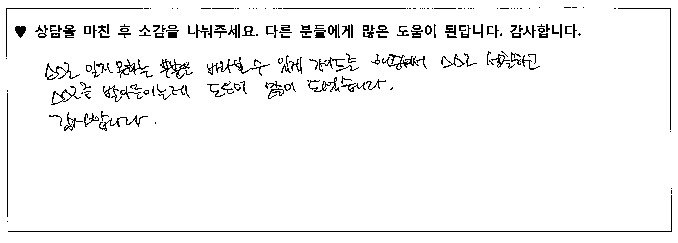 ♥ 상담을 마친 후 소감을 나눠주세요. 다른 분들에게 많은 도움이 된답니다. 감사합니다.
스스로 믿지 못하는 부분을 바라볼 수 있게 가이드를 해주셔서 스스로 성찰하고
스스로를 받아들이는데 도움이 많이 되었습니다.
감사합니다.